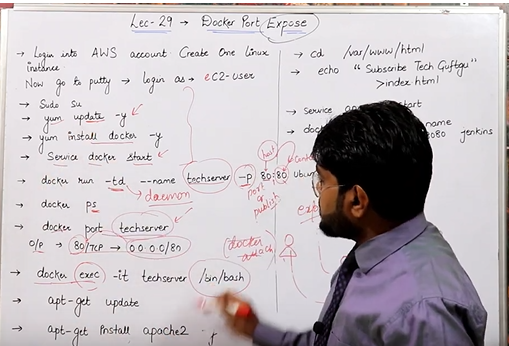 Lec-29 → Docker Port Expose
→ Login into AWS account. Create One Linux
instance
Now go to putty → Login as → ec2-user
→ Sudo su
→ yum update -y
→ yum install docker -y
→ Service docker start
→ docker run -td --name techserver -p 80:80 ubun
daemon
host
port
publish
→ docker ps
→ docker port techserver
O/P → 80/TCP → 0.0.0.0/80
(docker
attach)
→ docker exec -it techserver /bin/bash
→ apt-get update
→ apt-get install apache2 -y
→ cd /var/www/html
→ echo "Subscribe Tech Guftgu"
>index.html
→ service
→ name
8080 jenkins